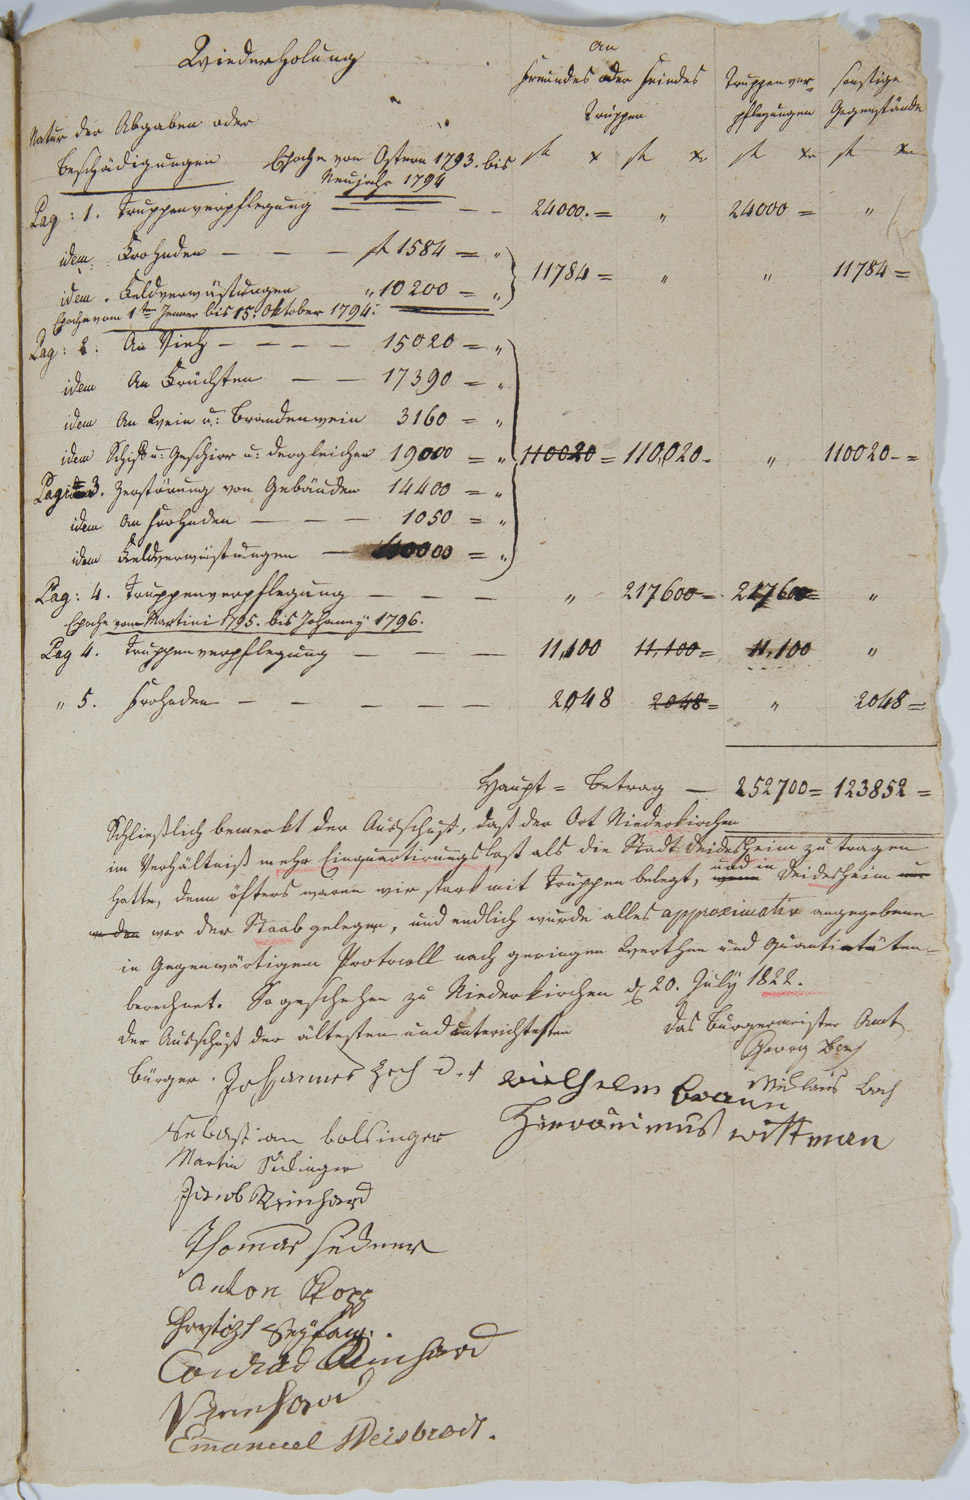 Wiederholung
an
Freundes oder Feindes Truppenver- sonstige
Truppen pflegungen Gegenstände
Natur der Abgaben oder
Beschädigungen Epoche von Ostern 1793. bis
Neujahr 1794
fl x fl xr fl xr fl xr
Pag: 1. Truppenverpflegung — — — 24000.= " 24000 = "
idem. Frohnden — — — fl 1584 = "
11784 = " " 11784 =
idem. Feldverwüstungen " 10200 = "
Epoche vom 1ten Jenner bis 15. Oktober 1794.
Pag: 2. An Vieh — — — — 15020 = "
idem An Früchten — — 17390 = "
idem An Wein u: Brandenwein 3160 = "
idem Schiff u. Geschirr u: dergleichen 19000 = " 110020 = 110,020- " 110020- =
Pag: 3. Zerstörung von Gebäuden 14400 = "
idem An Frohnden — — — 1050 = "
idem Feldverwüstungen — 40000 = "
Pag: 4. Truppenverpflegung — — — " 217600 = 217600 = "
Epoche vom Martini 1795. bis Johanny 1796.
Pag 4. Truppenverpflegung — — — 11,100 11,100 = 11,100 "
" 5. Frohnden — — — — — 2048 2048 = " 2048 =
Haupt = Betrag — 252700 = 123852 =
Schließlich bemerkt der Ausschuß, daß der Ort Niederkirchen
im Verhältniß mehr Einquartirungslast als die Stadt Deidesheim zu tragen
hatte, denn öfters waren wir stark mit Truppen belegt, und in Deidesheim
war der Staab gelegen, und endlich wurde alles approximativ angegebene
in Gegenwärtigem Protocoll nach geringen Werthen und Quantitäten-
berechnet. So geschehen zu Niederkirchen d. 20. July 1822.
der Ausschuß der ältesten und unterichtesten das Bürgermeister Amt
Georg
Bürger. Johannes Zech Wilhelm Braun Niklaus Bach
Sebastian bolsinger Hieronimus Wittman
Martin
Jacob Reinhard
Thomas
Anton Kopp
Conrad Reinhard
Reinhard
Emmanuel Weisbrodt.